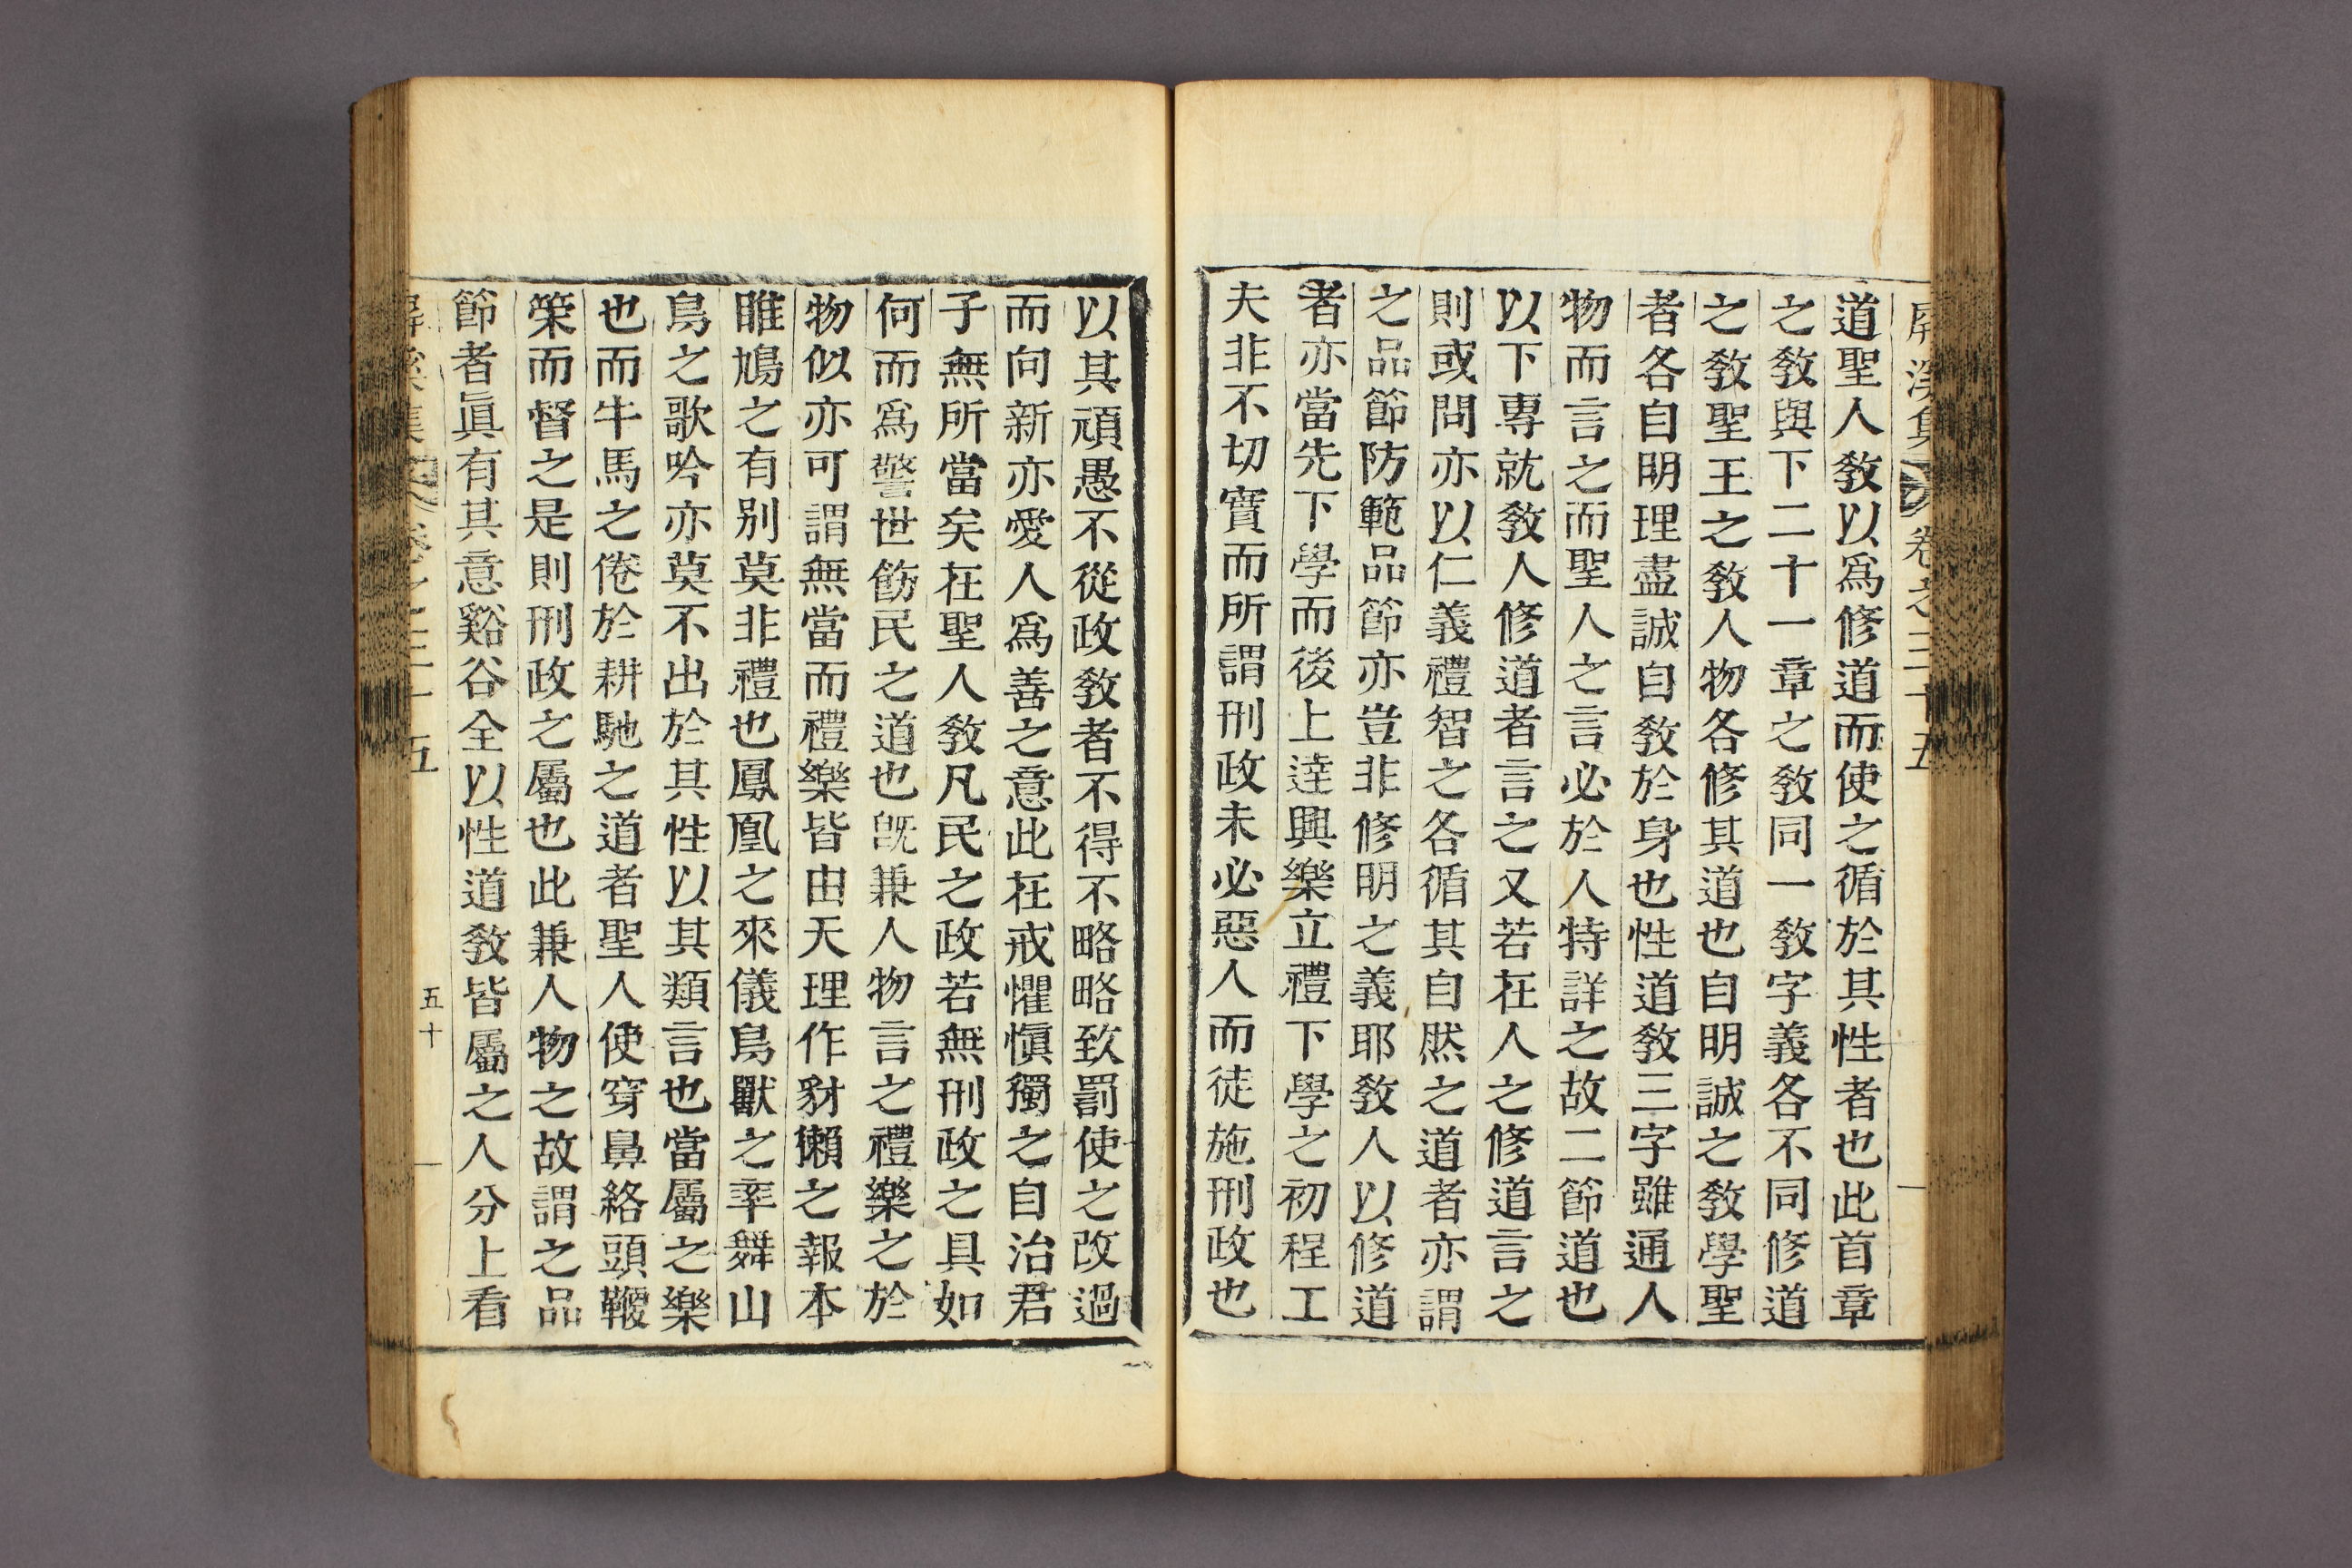 屛溪集 卷之三十五
道聖人敎以爲修道而使之循於其性者也此首章
之敎與下二十一章之敎同一敎字義各不同修道
之敎聖王之敎人物各修其道也自明誠之敎學聖
者各自明理盡誠自敎於身也性道敎三字雖通人
物而言之而聖人之言必於人特詳之故二節道也
以下專就敎人修道者言之又若在人之修道言之
則或問亦以仁義禮智之各循其自然之道者亦謂
之品節防範品節亦豈非修明之義耶敎人以修道
者亦當先下學而後上達興樂立禮下學之初程工
夫非不切實而所謂刑政未必惡人而徒施刑政也
以其頑愚不從政敎者不得不略略致罰使之改過
而向新亦愛人爲善之意此在戒懼愼獨之自治君
子無所當矣在聖人敎凡民之政若無刑政之具如
何而爲警世飭民之道也旣兼人物言之禮樂之於
物似亦可謂無當而禮樂皆由天理作豺獺之報本
睢鳩之有別莫非禮也鳳凰之來儀鳥獸之率舞山
鳥之歌吟亦莫不出於其性以其類言也當屬之樂
也而牛馬之倦於耕馳之道者聖人使穿鼻絡頭鞭
策而督之是則刑政之屬也此兼人物之故謂之品
節者眞有其意谿谷全以性道敎皆屬之人分上看
屛溪集 卷之三十五 五十